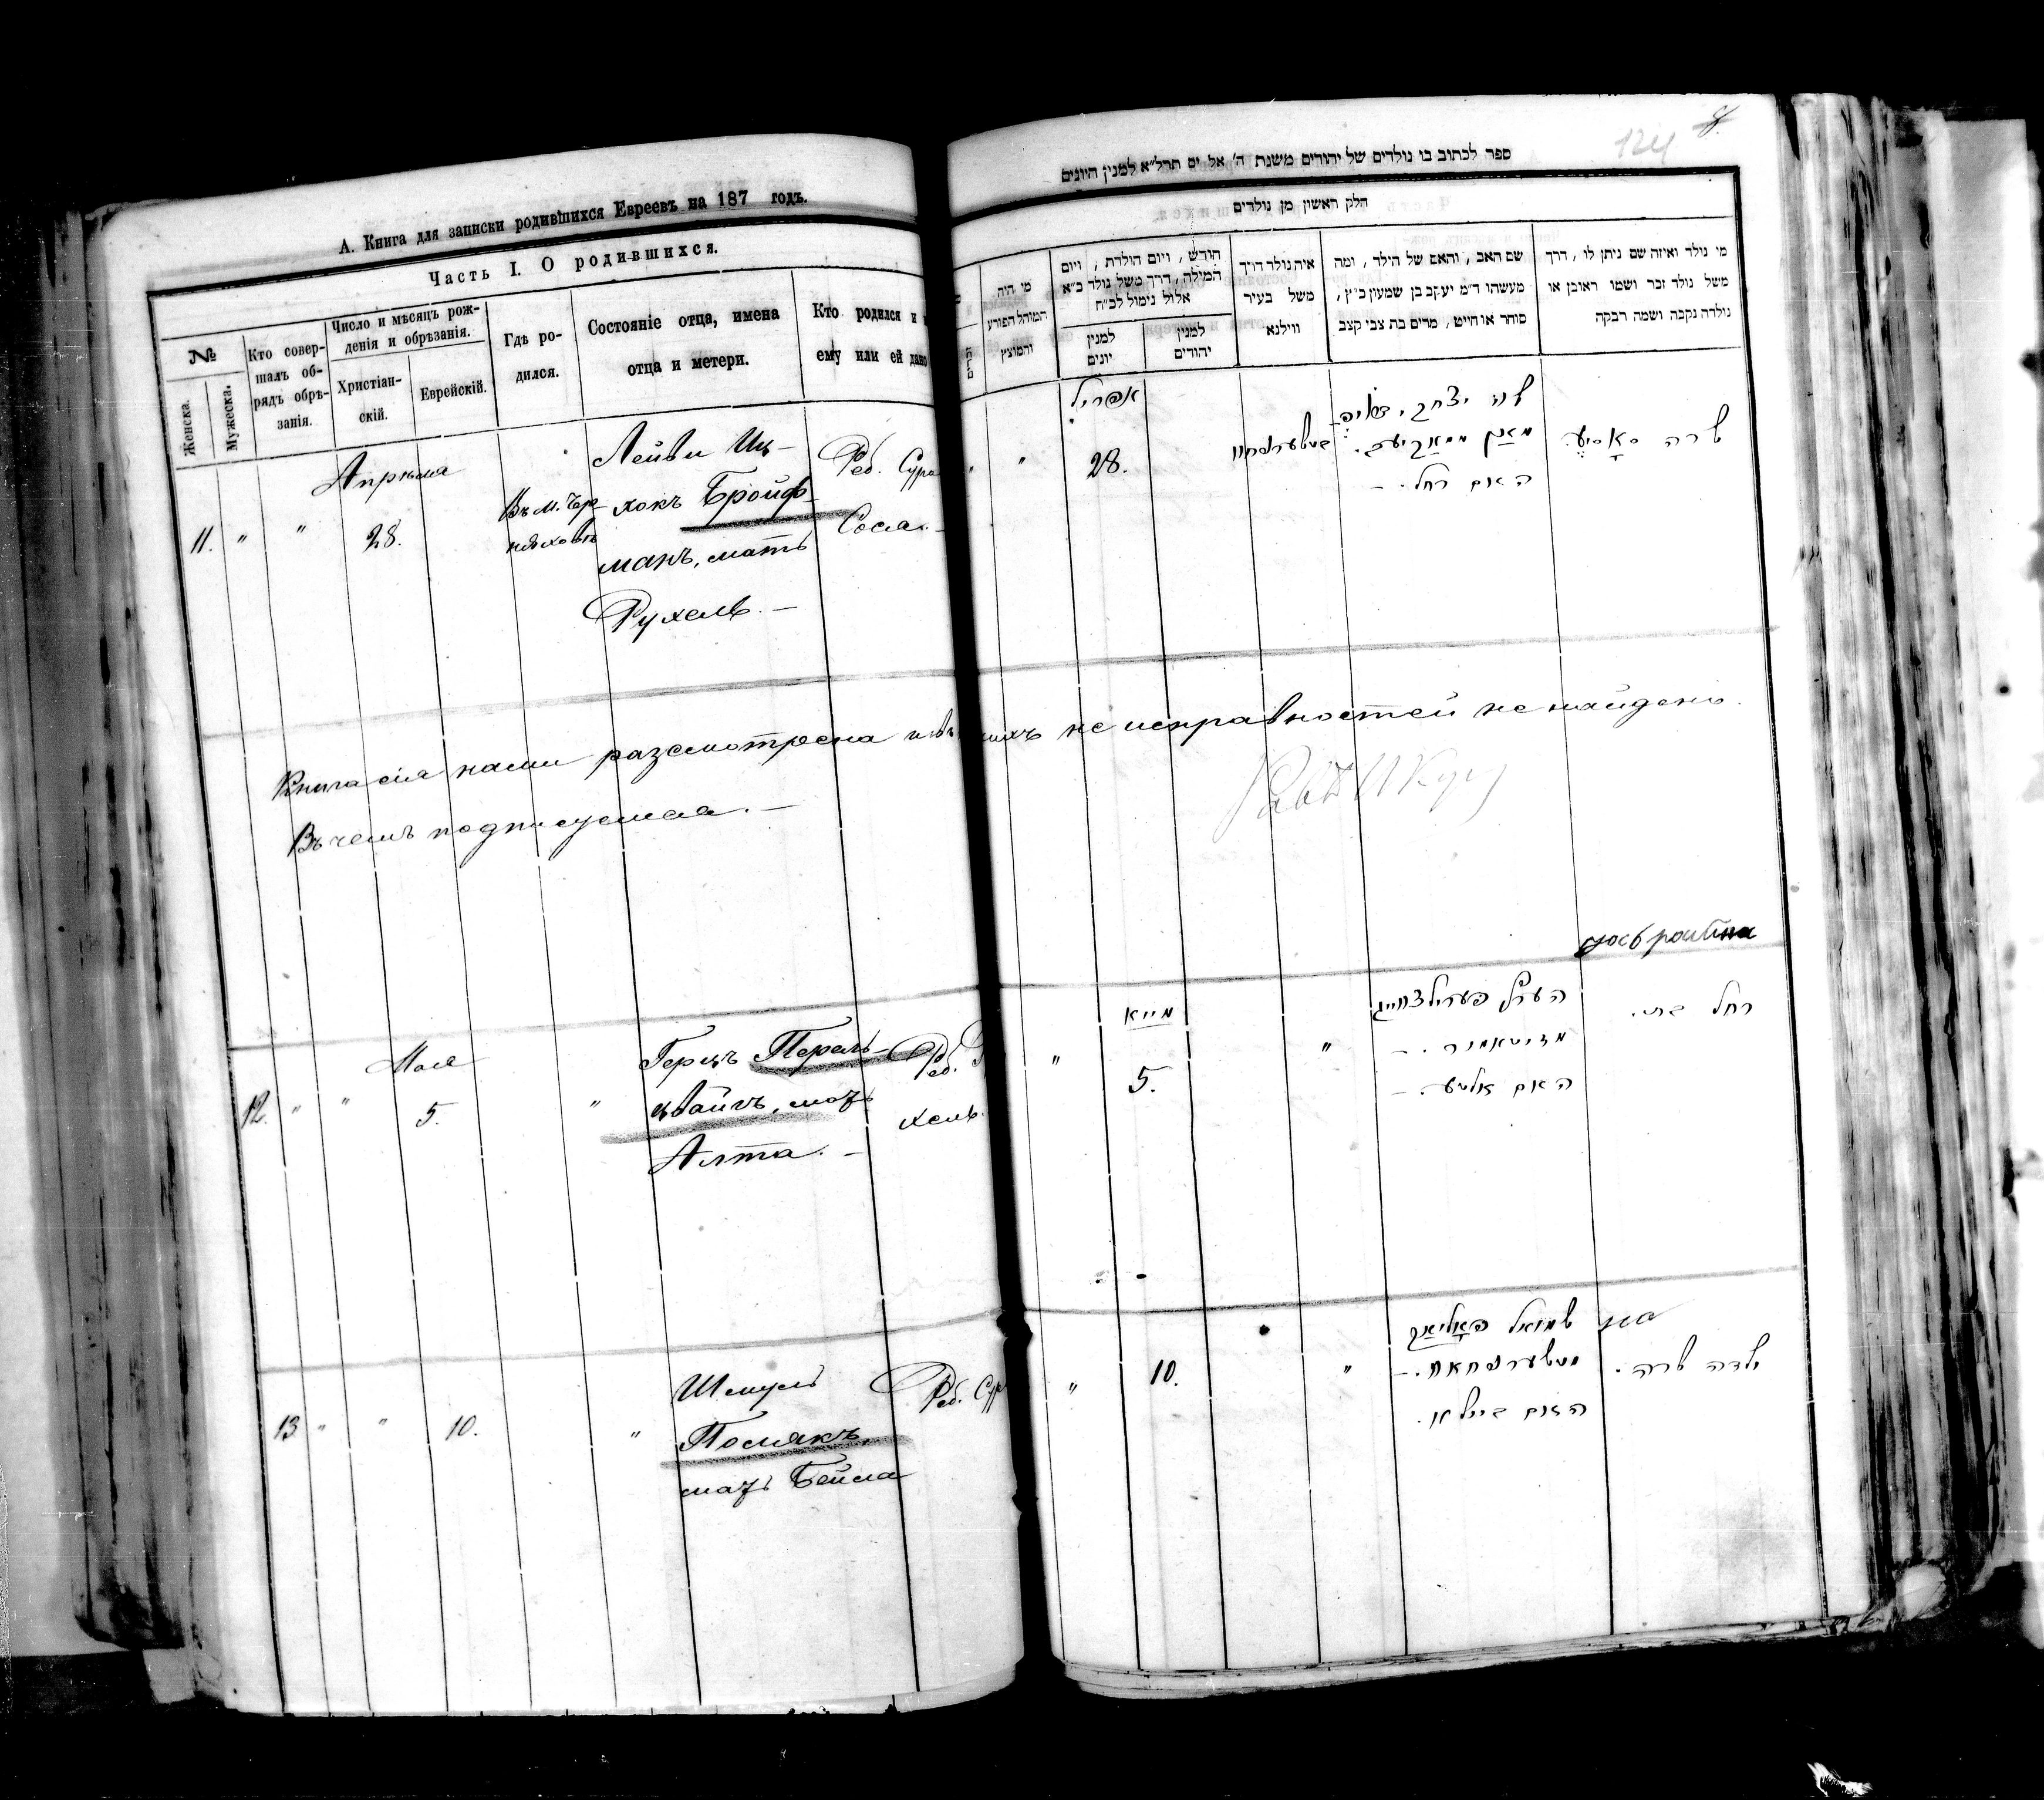 А. Книга для записки родившихся Евреевъ на 187 годъ.
Часть I. О родившихся.
№
Женска.
Мужеска.
Кто совер-
шалъ об-
рядъ обрѣ-
занія.
Число и мѣсяцъ рож-
денія и обрѣзанія.
Христіан-
скій.
Еврейскій.
Гдѣ ро-
дился.
Состояніе отца, имена
отца и метери.
Кто родился и
ему или ей дано
Апрѣля
11. " " 28.
Въ м. Чер-
няховѣ
Лейви Иц-
хокъ Бройф-
манъ, мать
Рухель. —
Реб. Сура
Сося. —
Книга сія нами разсмотрена и въ нихъ не исправностей не найдено.
Въ чемъ подписуемся. —
Мая
12. " " 5. "
Герцъ Перель-
цвайгъ, мать
Алта. —
Реб. Р
хель.
13 " " 10. "
Шмуль
Полякъ
мать Бейла
Реб. Сур
124
ספר לכתוב בו נולדים של יהודים משנת ה' אל ים תרל"א למנין היונים
חלק ראשון מן נולדים
מי נולד ואיזה שם ניתן לו, דרך
משל נולד זכר ושמו ראובן או
נולדה נקבה ושמה רבקה
שם האב, והאם של הילד, ומה
מעשהו ד"מ יעקב בן שמעון כ"ץ,
סוחר או חייט, מרים בת צבי קצב
איה נולד דרך
משל בעיר
ווילנא
חודש, ויום הולדת, ויום
המילה, דרך משל נולד כ"א
אלול נימול לכ"ח
למנין
יהודים
למנין
יונים
מי היה
המוהל הפורע
והמוצץ
אפריל
" " 28.
לוי יצחק
האם רחל. —
שרה סאסיע.
מייא
" 5. "
הערץ פערילצווייג
האם אלטע. —
רחל
" 10. "
שמואל פאליאק
האם ביילא.
ילדה שרה.